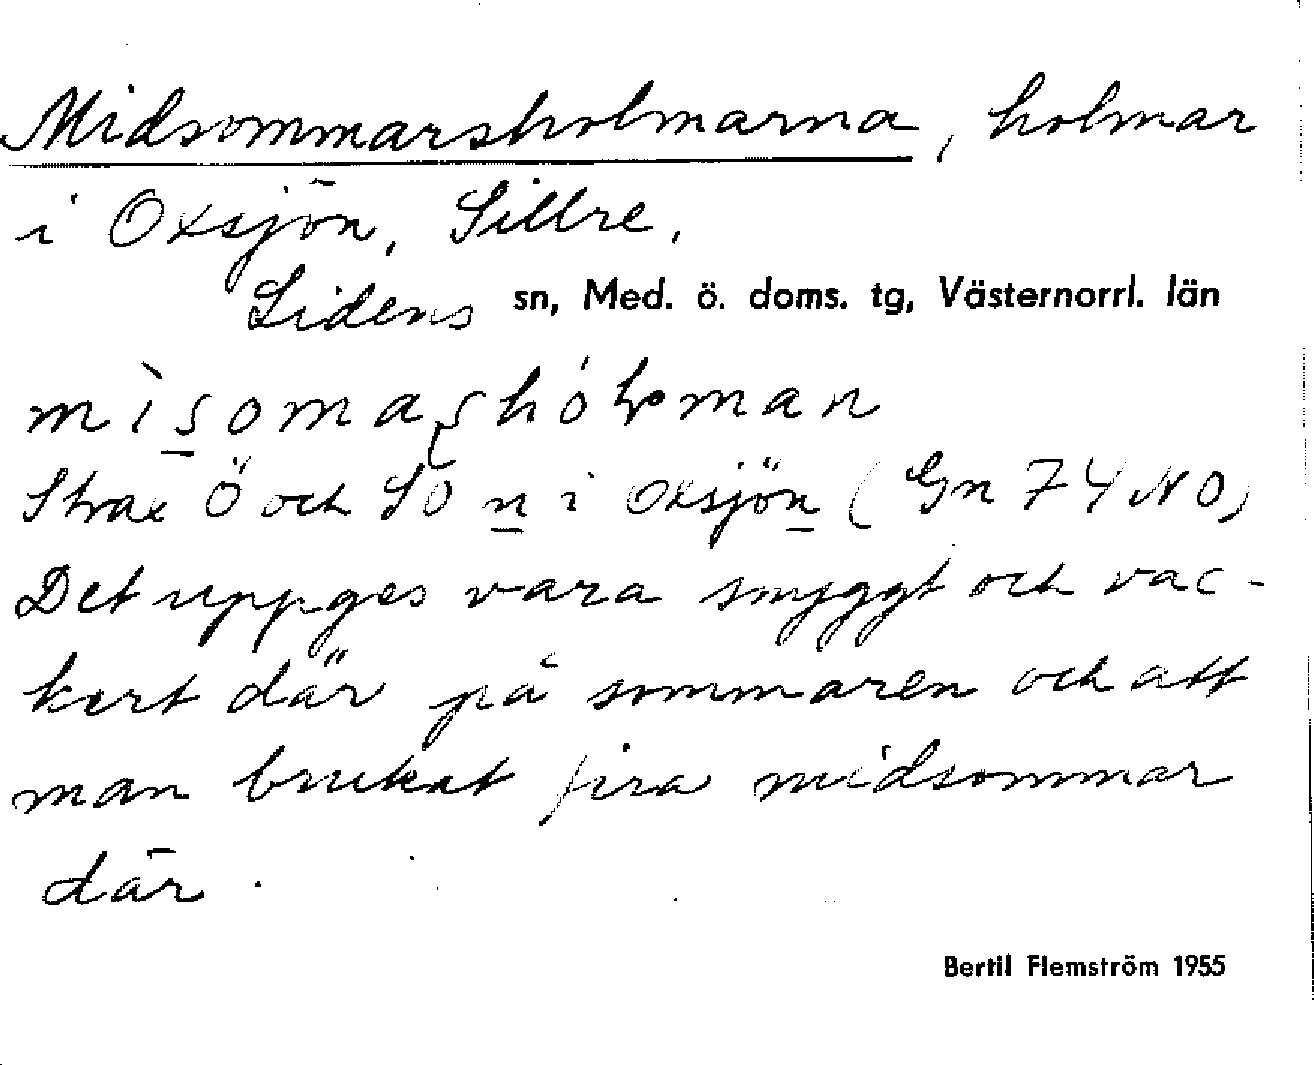 Midsommarsholmarna, holmar
i Oxsjön, Sillre,
Lidens sn, Med. ö. doms. tg, Västernorrl. län
Strax Ö och SÖ n i Oxsjön (Gn 74 NO)
Det uppges vara snyggt och vac-
kert där på sommaren och att
man brukat fira midsommar
där.
Bertil Flemström 1955